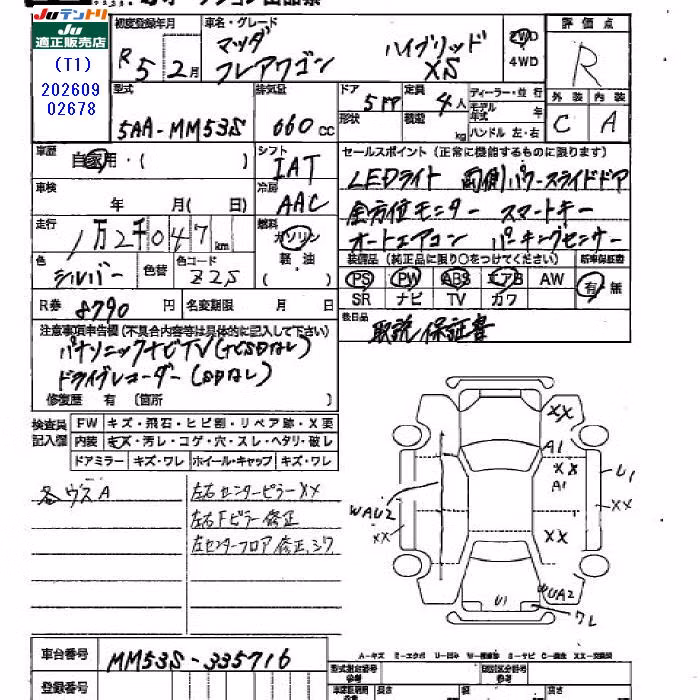 Juテントリ
Ju
適正販売店
(T1)
202609
02678
初度登録年月
R 5 2月
車名・グレード
マツダ ハイブリッド
フレアワゴン XS
2WD
4WD
評価点
R
外装 内装
C A
型式
5AA-MM53S
排気量
660 cc
ドア
5ドア
形状
定員
4人
積載 kg
ディーラー・並行
モデル年式 年
ハンドル 左・右
車歴
自家用・( )
シフト
IAT
車検
年 月( 日)
冷房
AAC
走行
1万2千047km
燃料
ガソリン
軽油
( )
色
シルバー
色替
色コード
Z2S
R券 8790円
名変期限 月 日
セールスポイント(正常に機能するものに限ります)
LEDライト 両側パワースライドドア
全方位モニター スマートキー
オートエアコン パーキングセンサー
装備品(純正品に限り○をつけてください)
新車保証書
PS PW ABS エアB AW
SR ナビ TV カワ
有・無
後日品
取説 保証書
注意事項申告欄(不具合内容等は具体的に記入して下さい)
パナソニックナビTV(TCSDなし)
ドライブレコーダー(SDなし)
修復歴 有 〔箇所 〕
検査員
記入欄
FW キズ・飛石・ヒビ割・リペア跡・X要
内装 キズ・汚レ・コゲ・穴・スレ・ヘタリ・破レ
ドアミラー キズ・ワレ ホイール・キャップ キズ・ワレ
各ウスA
左右センターピラーXX
左右Fピラー修正
左センターフロア修正、シワ
XX
A1
XX
A1
U1
XX
WAU2
XX
XX
U1
WUA2
ワレ
車台番号
MM53S-335716
登録番号
A-キズ E-エクボ U-凹み W-補修跡 S-サビ C-腐食 XX-交換済
型式指定番号
参考
類別区分番号
参考
長さ
幅
高さ